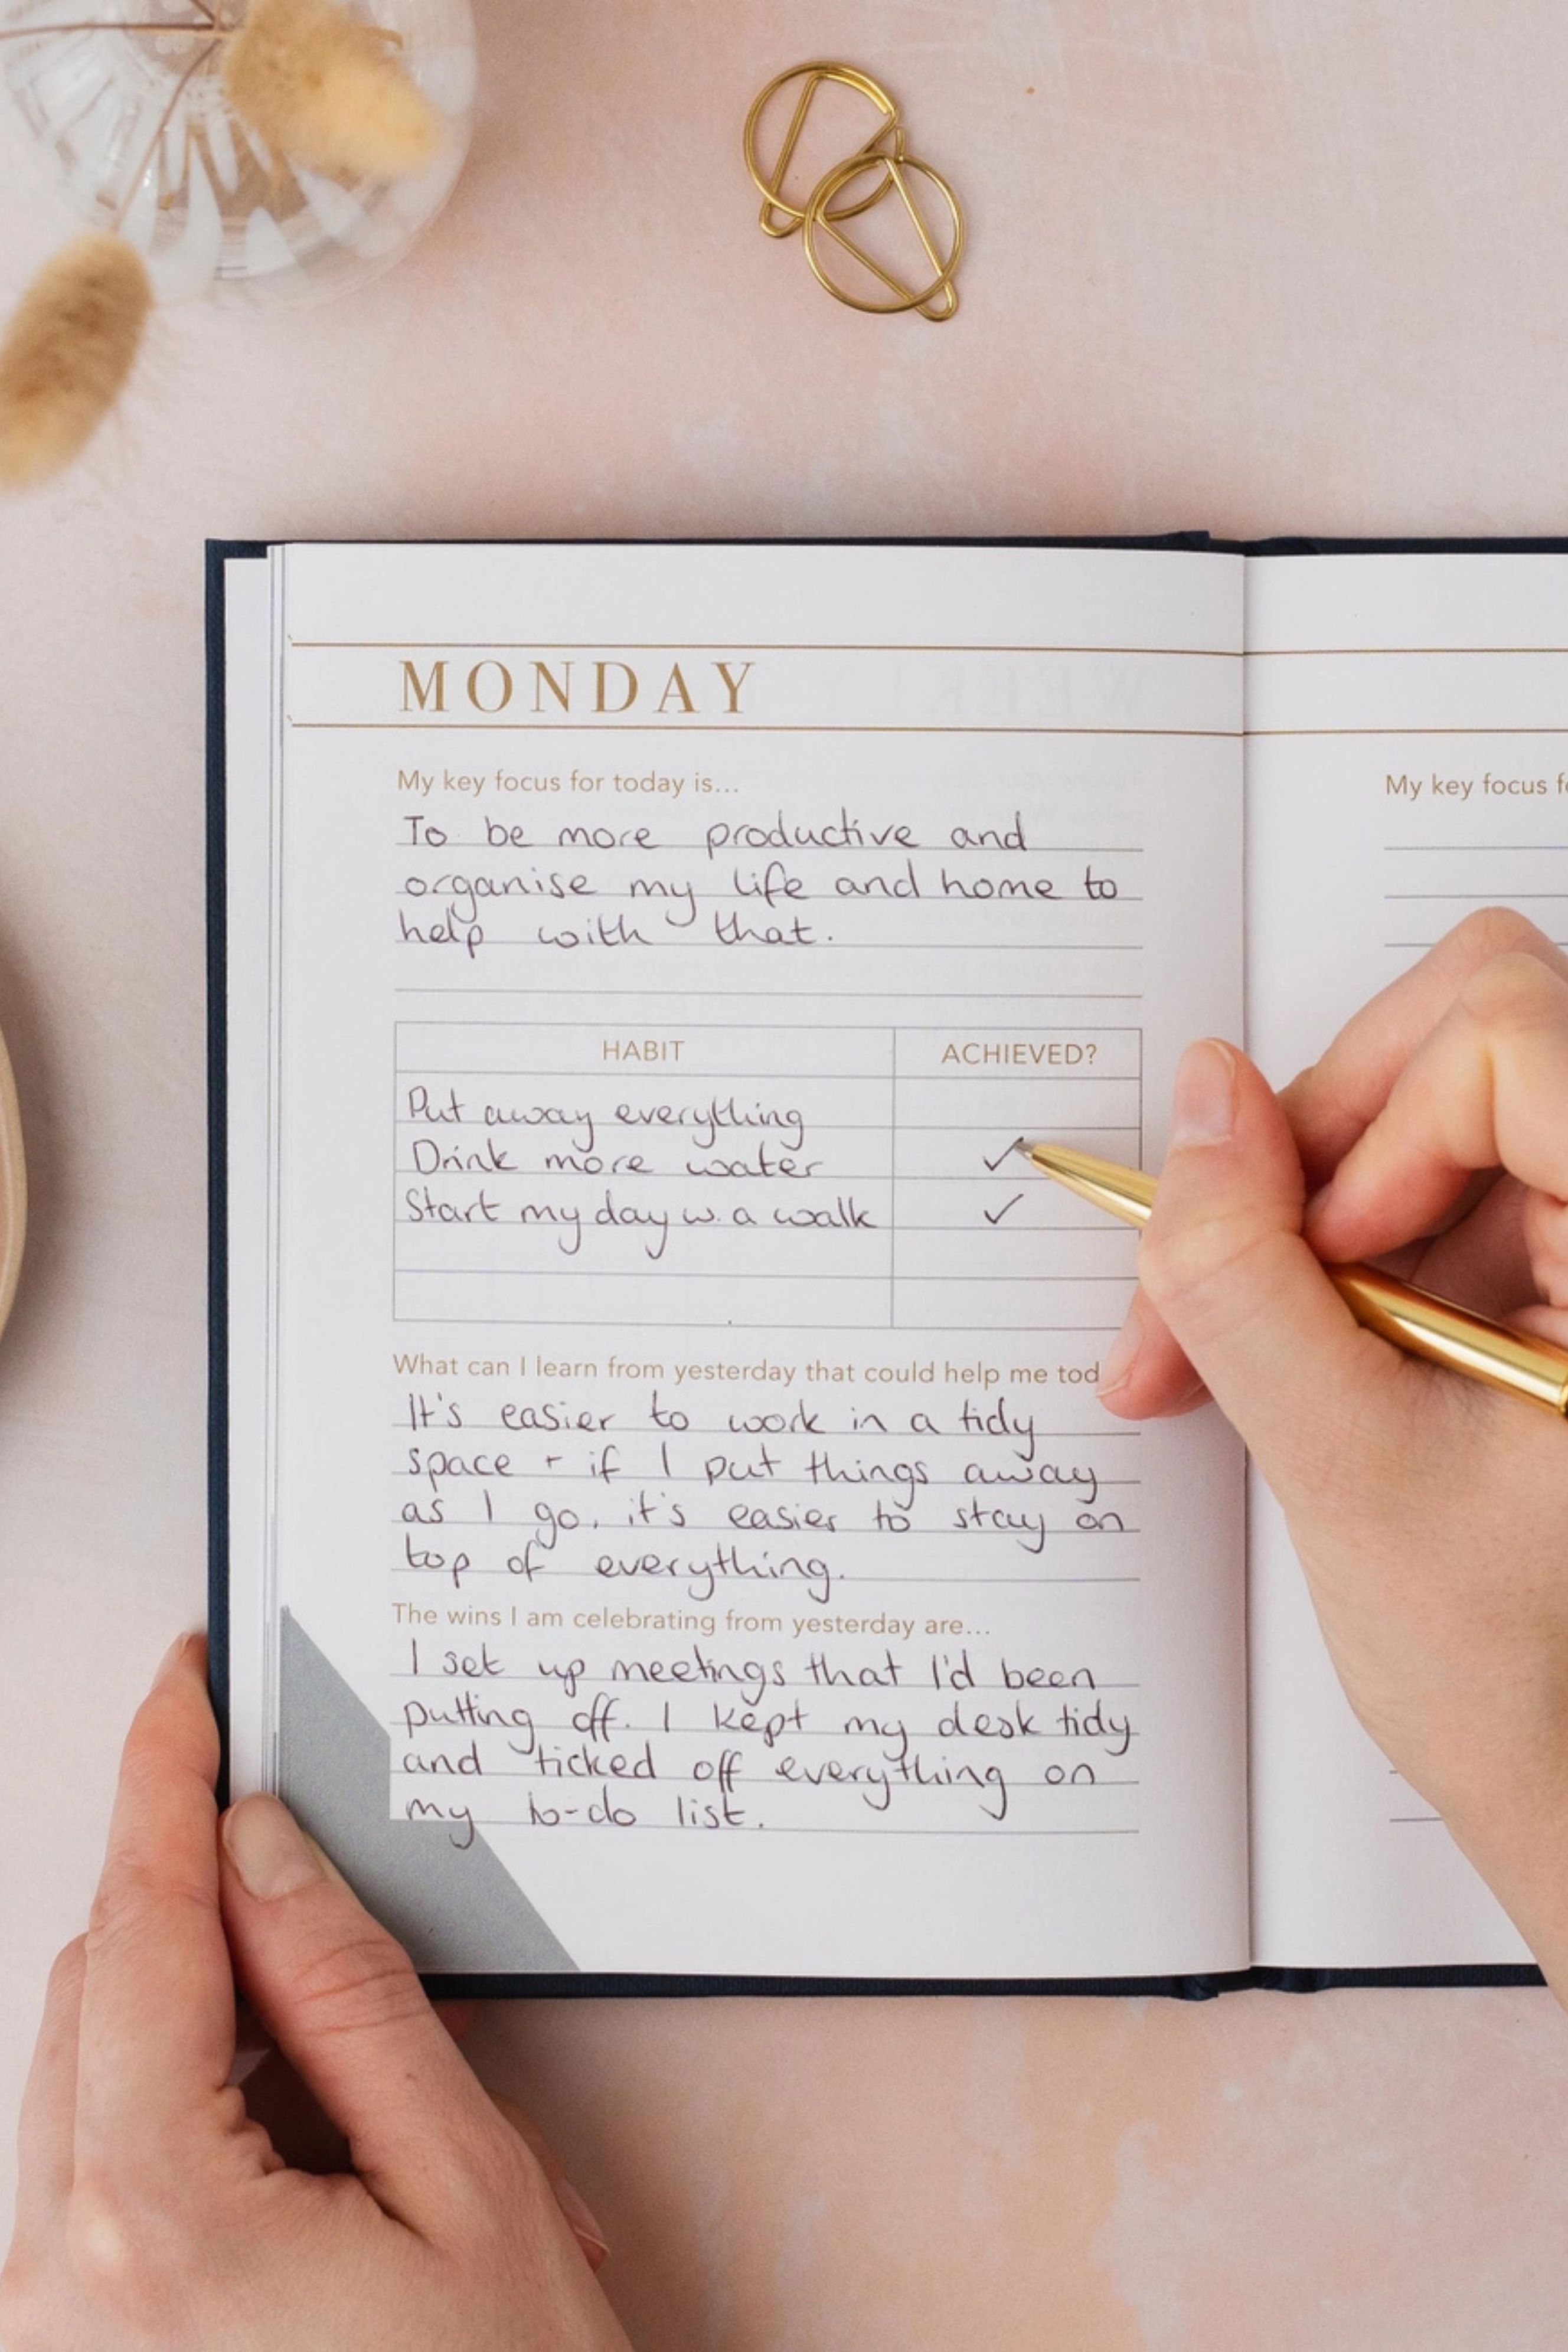 MONDAY
My key focus for today is...
To be more productive and
organise my life and home to
help with that.
HABIT ACHIEVED?
Put away everything
Drink more water ✓
Start my day w. a walk ✓
What can I learn from yesterday that could help me tod
It's easier to work in a tidy
space + if I put things away
as I go, it's easier to stay on
top of everything.
The wins I am celebrating from yesterday are...
I set up meetings that I'd been
putting off. I kept my desk tidy
and ticked off everything on
my to-do list.
My key focus f